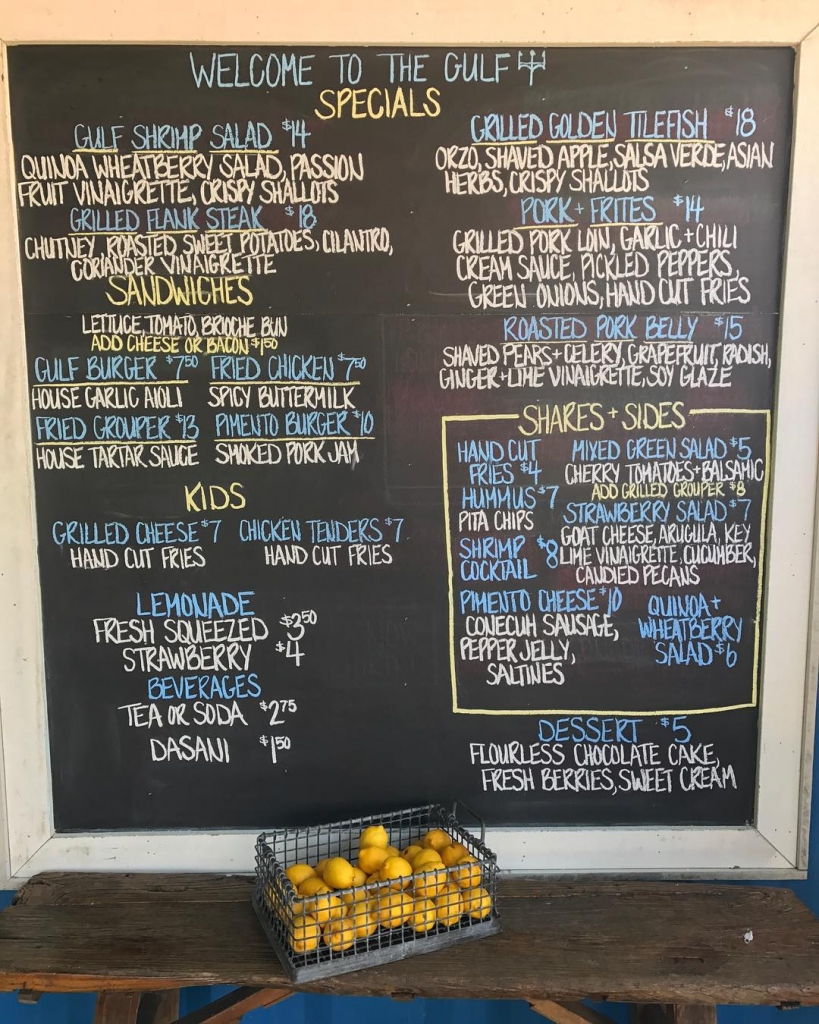 WELCOME TO THE GULF
SPECIALS
GULF SHRIMP SALAD $14
QUINOA WHEATBERRY SALAD, PASSION
FRUIT VINAIGRETTE, CRISPY SHALLOTS
GRILLED FLANK STEAK $18
CHUTNEY, ROASTED SWEET POTATOES, CILANTRO,
CORIANDER VINAIGRETTE
SANDWICHES
LETTUCE, TOMATO, BRIOCHE BUN
ADD CHEESE OR BACON $1.50
GULF BURGER $7.50 FRIED CHICKEN $7.50
HOUSE GARLIC AIOLI SPICY BUTTERMILK
FRIED GROUPER $13 PIMENTO BURGER $10
HOUSE TARTAR SAUCE SMOKED PORK JAM
KIDS
GRILLED CHEESE $7 CHICKEN TENDERS $7
HAND CUT FRIES HAND CUT FRIES
LEMONADE
FRESH SQUEEZED $3.50
STRAWBERRY $4
BEVERAGES
TEA OR SODA $2.75
DASANI $1.50
GRILLED GOLDEN TILEFISH $18
ORZO, SHAVED APPLE, SALSA VERDE, ASIAN
HERBS, CRISPY SHALLOTS
PORK + FRITES $14
GRILLED PORK LOIN, GARLIC + CHILI
CREAM SAUCE, PICKLED PEPPERS,
GREEN ONIONS, HAND CUT FRIES
ROASTED PORK BELLY $15
SHAVED PEARS + CELERY, GRAPEFRUIT, RADISH,
GINGER + LIME VINAIGRETTE, SOY GLAZE
SHARES + SIDES
HAND CUT
FRIES $4
HUMMUS $7
PITA CHIPS
SHRIMP
COCKTAIL $8
PIMENTO CHEESE $10
CONECUH SAUSAGE,
PEPPER JELLY,
SALTINES
MIXED GREEN SALAD $5
CHERRY TOMATOES + BALSAMIC
ADD GRILLED GROUPER $8
STRAWBERRY SALAD $7
GOAT CHEESE, ARUGULA, KEY
LIME VINAIGRETTE, CUCUMBER,
CANDIED PECANS
QUINOA +
WHEATBERRY
SALAD $6
DESSERT $5
FLOURLESS CHOCOLATE CAKE,
FRESH BERRIES, SWEET CREAM